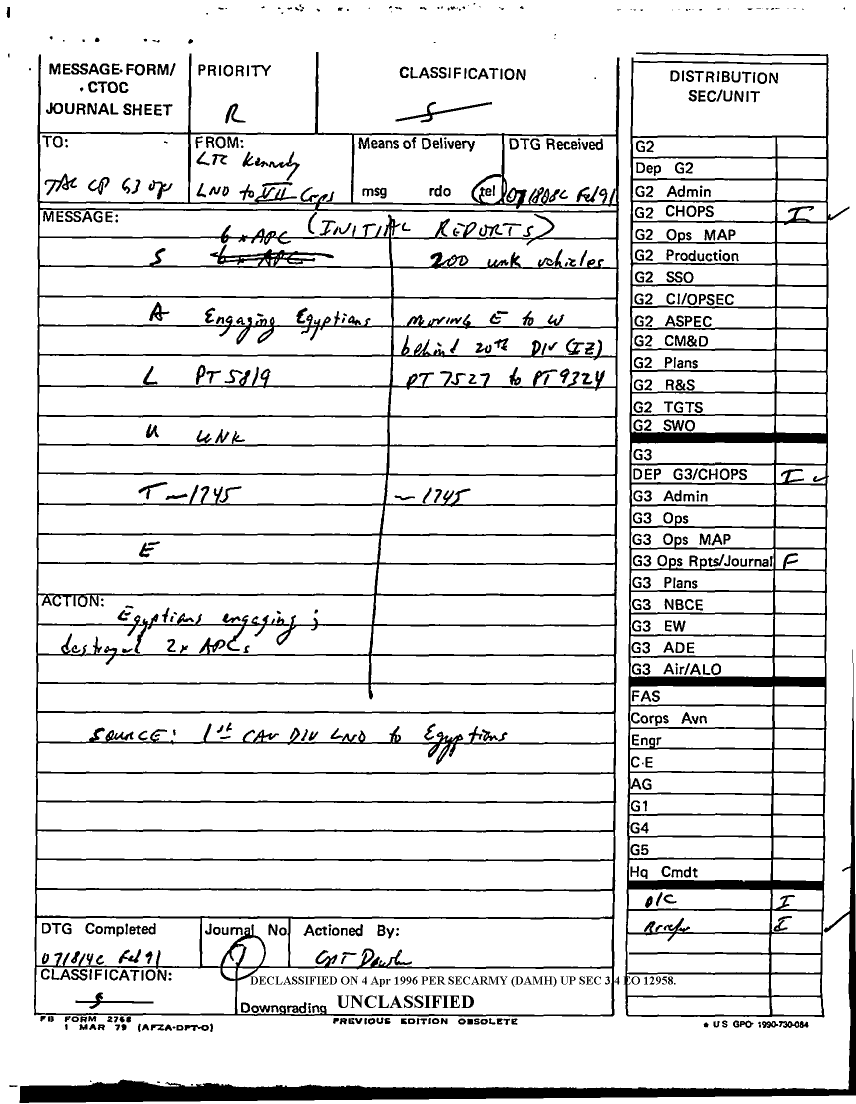 MESSAGE-FORM/ CTOC JOURNAL SHEET
PRIORITY
R
CLASSIFICATION
S
TO:
TAC CP G3 Op
FROM:
LTC Kennedy
LNO to VII Corps
Means of Delivery
msg rdo tel
DTG Received
071808C Feb 91
MESSAGE:
(INITIAL REPORTS)
6 x APC
S 6 x APC 200 unk vehicles
A Engaging Egyptians moving E to W
behind 20th DIV (IZ)
L PT 5819 PT 7527 to PT 9324
U UNK
T ~1745 ~1745
E
ACTION:
Egyptians engaging;
destroyed 2x APCs
SOURCE: 1st CAV DIV LNO to Egyptians
DTG Completed
071814C Feb 91
Journal No
7
Actioned By:
CPT
CLASSIFICATION:
S
DECLASSIFIED ON 4 Apr 1996 PER SECARMY (DAMH) UP SEC 3.4 EO 12958.
Downgrading UNCLASSIFIED
FB FORM 2768
1 MAR 79 (AFZA-DPT-O)
PREVIOUS EDITION OBSOLETE
DISTRIBUTION
SEC/UNIT
G2
Dep G2
G2 Admin
G2 CHOPS I ✓
G2 Ops MAP
G2 Production
G2 SSO
G2 CI/OPSEC
G2 ASPEC
G2 CM&D
G2 Plans
G2 R&S
G2 TGTS
G2 SWO
G3
DEP G3/CHOPS I ✓
G3 Admin
G3 Ops
G3 Ops MAP
G3 Ops Rpts/Journal F
G3 Plans
G3 NBCE
G3 EW
G3 ADE
G3 Air/ALO
FAS
Corps Avn
Engr
C-E
AG
G1
G4
G5
Hq Cmdt
O/C I
I ✓
★ U S GPO· 1990-730-084